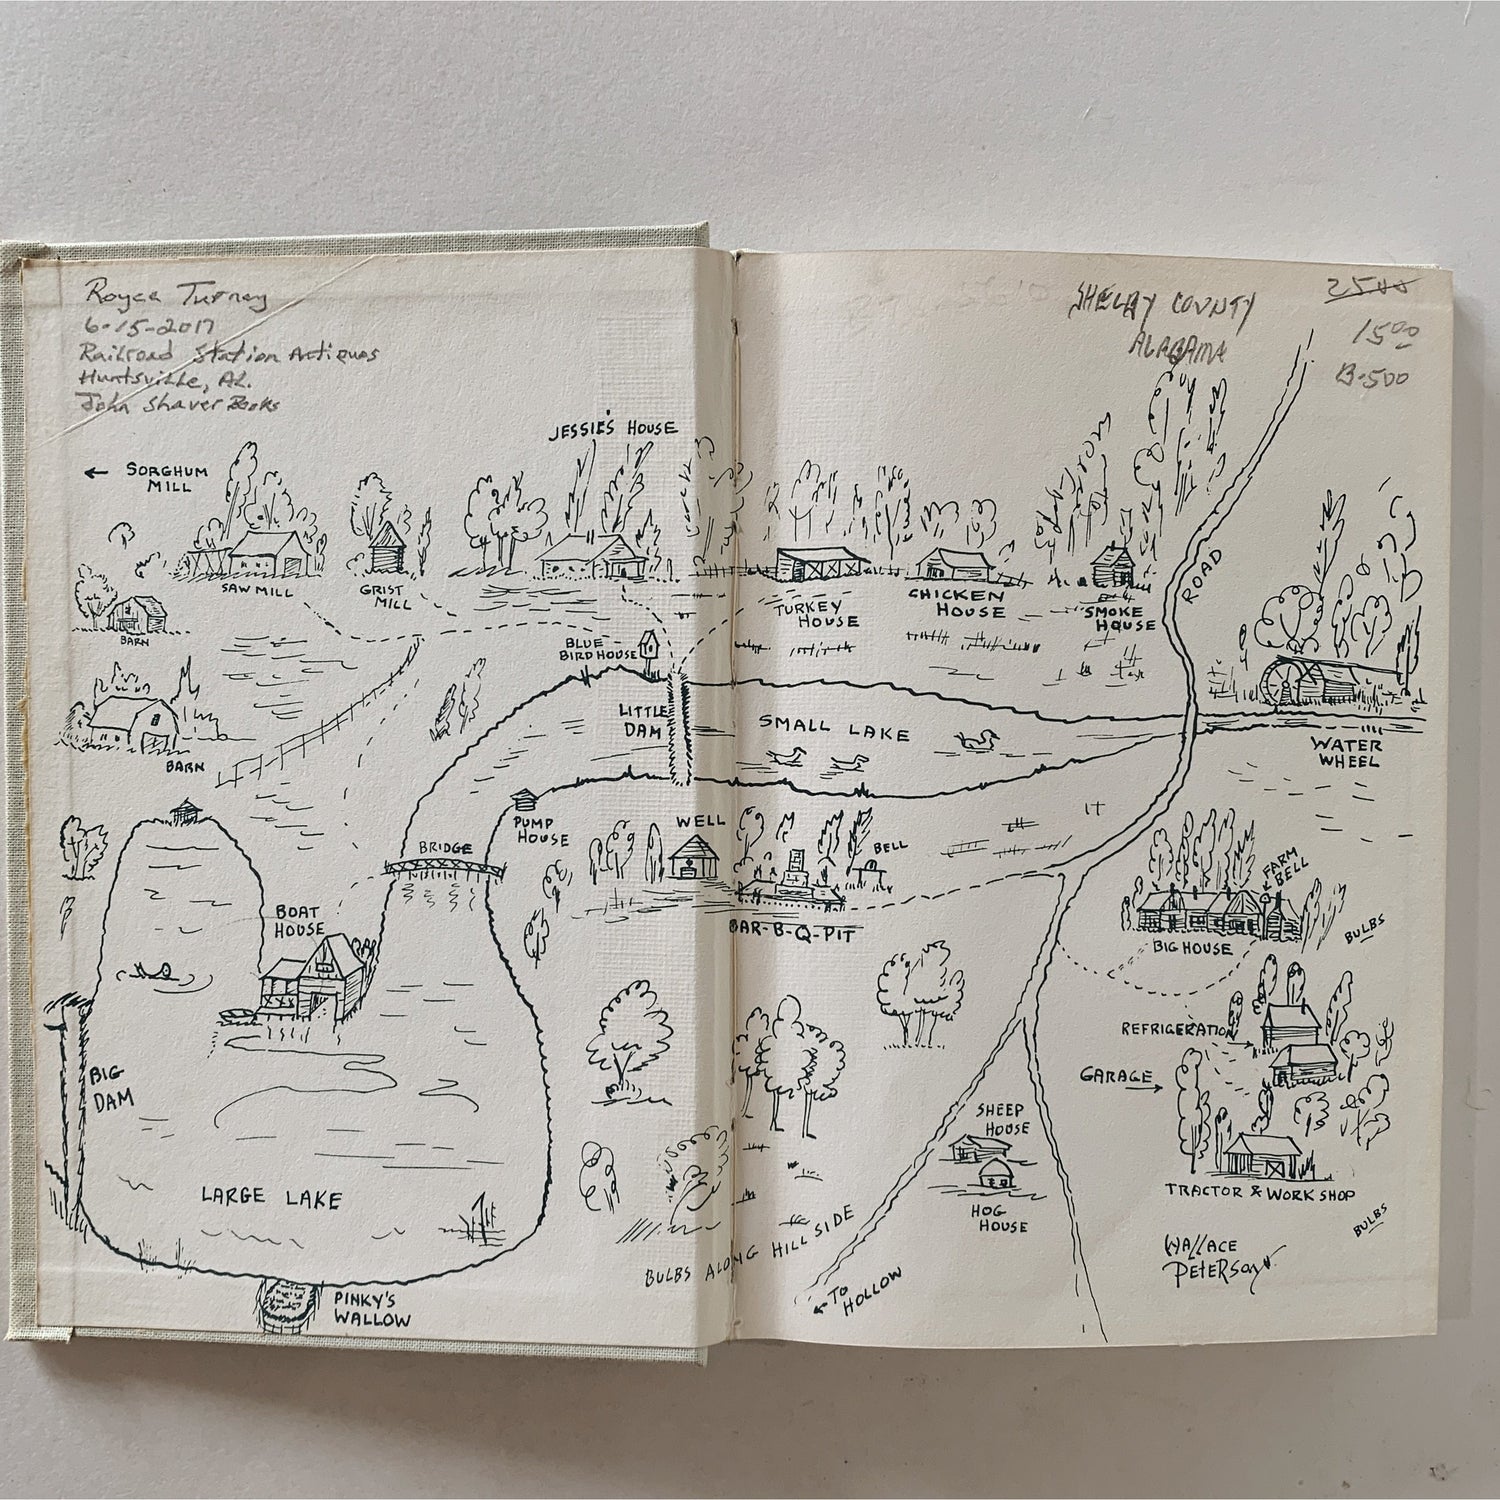 Royce Turney
6-15-2017
Railroad Station Antiques
Huntsville, AL.
John Shaver Books
SHELBY COUNTY
ALABAMA
25.00
15.00
B-500
JESSIE'S HOUSE
← SORGHUM
MILL
SAW MILL
GRIST
MILL
BARN
BARN
BLUE
BIRD HOUSE
TURKEY
HOUSE
CHICKEN
HOUSE
SMOKE
HOUSE
ROAD
LITTLE
DAM
SMALL LAKE
WATER
WHEEL
PUMP
HOUSE
WELL
BELL
BRIDGE
BAR-B-Q-PIT
FARM
BELL
BIG HOUSE
BULBS
BOAT
HOUSE
BIG
DAM
LARGE LAKE
REFRIGERATION
GARAGE
SHEEP
HOUSE
HOG
HOUSE
TRACTOR & WORK SHOP
BULBS
BULBS ALONG HILL SIDE
← TO
HOLLOW
PINKY'S
WALLOW
WALLACE
PETERSON